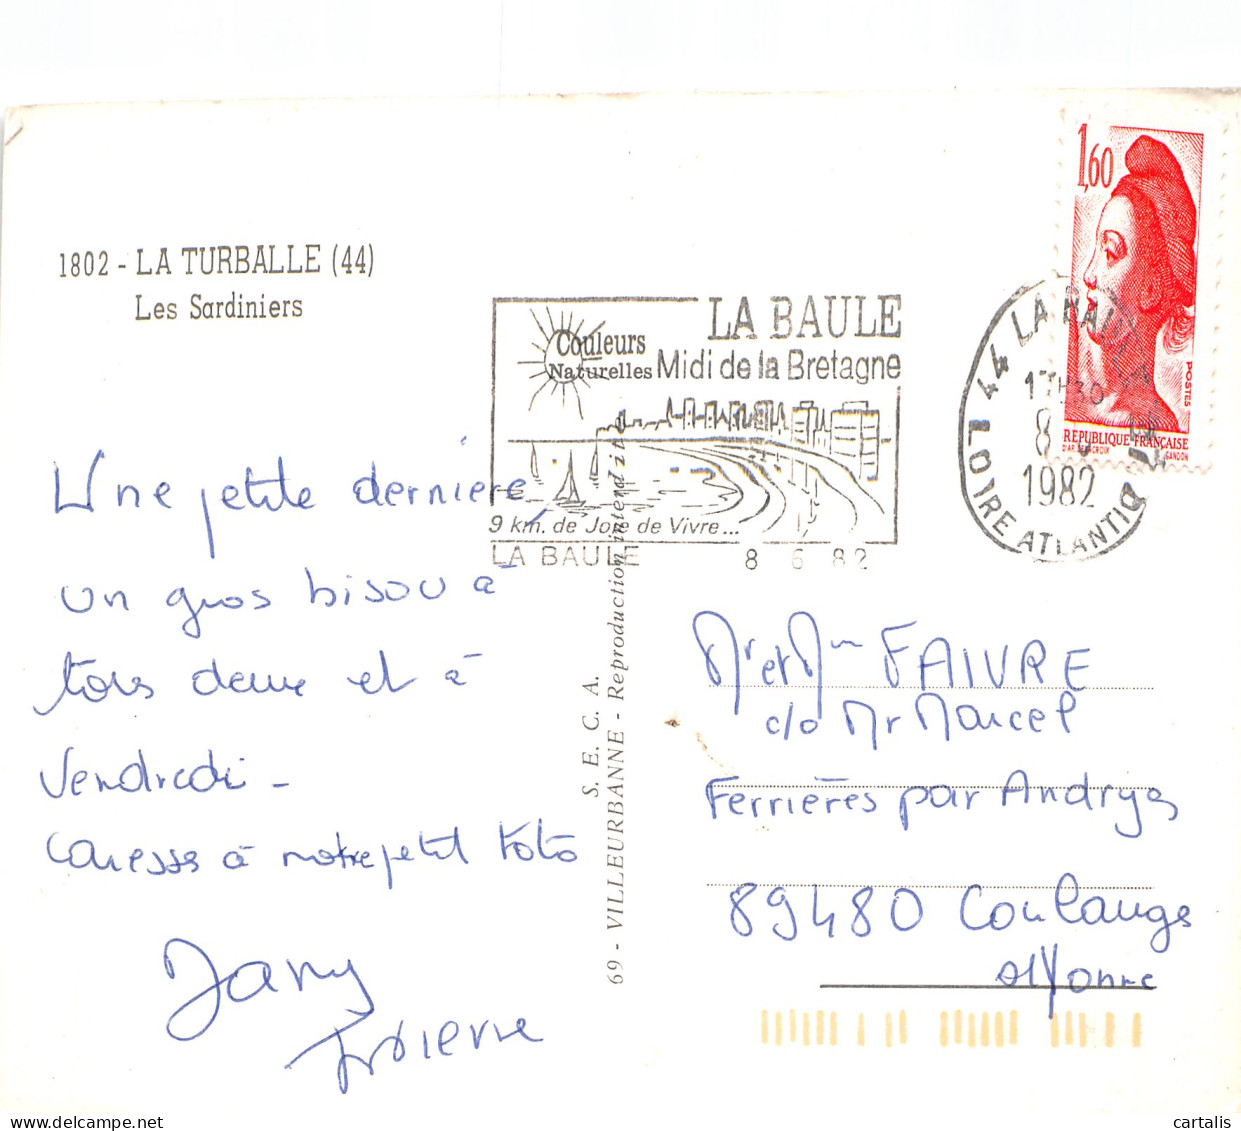 1802 - LA TURBALLE (44)
Les Sardiniers
Une petite dernière,
un gros bisou à
tous deux et à
Vendredi -
Caresse à notre petit Toto
Jany
69 - VILLEURBANNE - Reproduction interdite
S. E. C. A.
Couleurs
Naturelles
LA BAULE
Midi de la Bretagne
9 km. de Joie de Vivre...
LA BAULE 8 6 82
44 LA BAULE
17H30
8
1982
LOIRE ATLANTIQUE
1,60
POSTES
REPUBLIQUE FRANÇAISE
D'AP. DELACROIX GANDON
Mr et Mme FAIVRE
c/o Mr Marcel
Ferrières par Andryes
89480 Coulanges
s/Yonne
postcard.net
cartalis